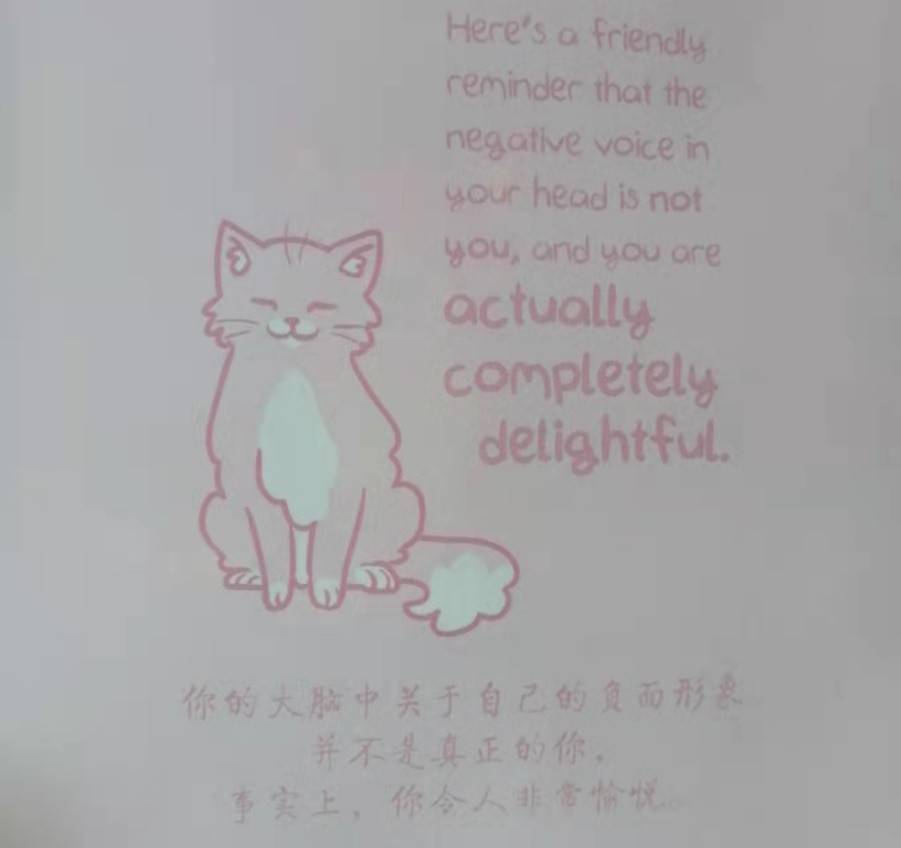 Here's a friendly
reminder that the
negative voice in
your head is not
you, and you are
actually
completely
delightful.
你的大脑中关于自己的负面形象
并不是真正的你.
事实上, 你令人非常愉悦。